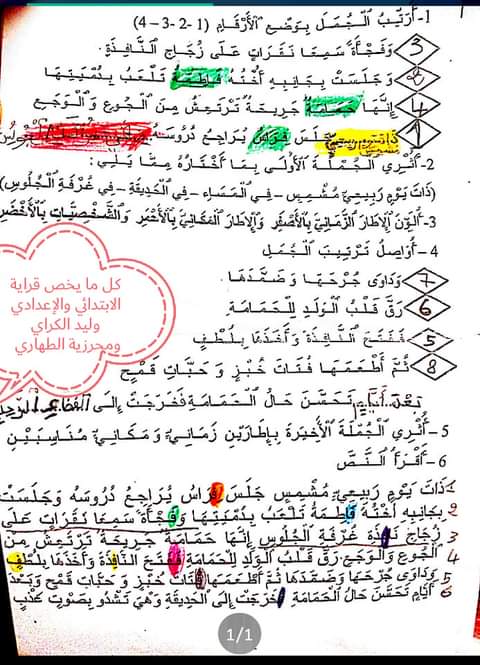 1- أُرَتِّبُ الْجُمَلَ بِوَضْعِ الْأَرْقَامِ (1 -2 -3 -4)
3 وَفَجْأَةً سَمِعَا نَقَرَاتٍ عَلَى زُجَاجِ النَّافِذَةِ
2 وَجَلَسَتْ بِجَانِبِهِ أُخْتُهُ فَاطِمَةُ تَلْعَبُ بِدُمْيَتِهَا
4 إِنَّهَا حَمَامَةٌ جَرِيحَةٌ تَرْتَعِشُ مِنَ الْجُوعِ وَالْوَجَعِ
1 ذَاتَ يَوْمٍ رَبِيعِيٍّ مُشْمِسٍ جَلَسَ فِرَاسُ يُرَاجِعُ دُرُوسَهُ
2- أُثْرِي الْجُمْلَةَ الْأُولَى بِمَا أَخْتَارُهُ مِمَّا يَلِي :
(ذَاتَ يَوْمٍ رَبِيعِيٍّ مُشْمِسٍ - فِي الْمَسَاءِ - فِي الْحَدِيقَةِ - فِي غُرْفَةِ الْجُلُوسِ)
3- أُلَوِّنُ الْإِطَارَ الزَّمَانِيَّ بِالْأَصْفَرِ وَالْإِطَارَ الْمَكَانِيَّ بِالْأَحْمَرِ وَالشَّخْصِيَّاتِ بِالْأَخْضَرِ
4- أُوَاصِلُ تَرْتِيبَ الْجُمَلِ
7 وَدَاوَى جُرْحَهَا وَضَمَّدَهَا
6 رَقَّ قَلْبُ الْوَلَدِ لِلْحَمَامَةِ
5 فَفَتَحَ النَّافِذَةَ وَأَخَذَهَا بِلُطْفٍ
8 ثُمَّ أَطْعَمَهَا فُتَاتَ خُبْزٍ وَحَبَّاتِ قَمْحٍ
كل ما يخص قراية
الابتدائي والإعدادي
وليد الكراي
ومحرزية الطهاري
بَعْدَ أَيَّامٍ تَحَسَّنَ حَالُ الْحَمَامَةِ فَخَرَجَتْ إِلَى
5- أُثْرِي الْجُمْلَةَ الْأَخِيرَةَ بِإِطَارَيْنِ زَمَانِيٍّ وَمَكَانِيٍّ مُنَاسِبَيْنِ
6- أَقْرَأُ النَّصَّ
1 ذَاتَ يَوْمٍ رَبِيعِيٍّ مُشْمِسٍ جَلَسَ فِرَاسُ يُرَاجِعُ دُرُوسَهُ وَجَلَسَتْ
2 بِجَانِبِهِ أُخْتُهُ فَاطِمَةُ تَلْعَبُ بِدُمْيَتِهَا وَفَجْأَةً سَمِعَا نَقَرَاتٍ عَلَى
3 زُجَاجِ نَافِذَةِ غُرْفَةِ الْجُلُوسِ إِنَّهَا حَمَامَةٌ جَرِيحَةٌ تَرْتَعِشُ مِنَ
4 الْجُوعِ وَالْوَجَعِ رَقَّ قَلْبُ الْوَلَدِ لِلْحَمَامَةِ فَفَتَحَ النَّافِذَةَ وَأَخَذَهَا بِلُطْفٍ
5 وَدَاوَى جُرْحَهَا وَضَمَّدَهَا ثُمَّ أَطْعَمَهَا فُتَاتَ خُبْزٍ وَحَبَّاتِ قَمْحٍ وَبَعْدَ
6 أَيَّامٍ تَحَسَّنَ حَالُ الْحَمَامَةِ خَرَجَتْ إِلَى الْحَدِيقَةِ وَهِيَ تَشْدُو بِصَوْتٍ عَذْبٍ
1/1